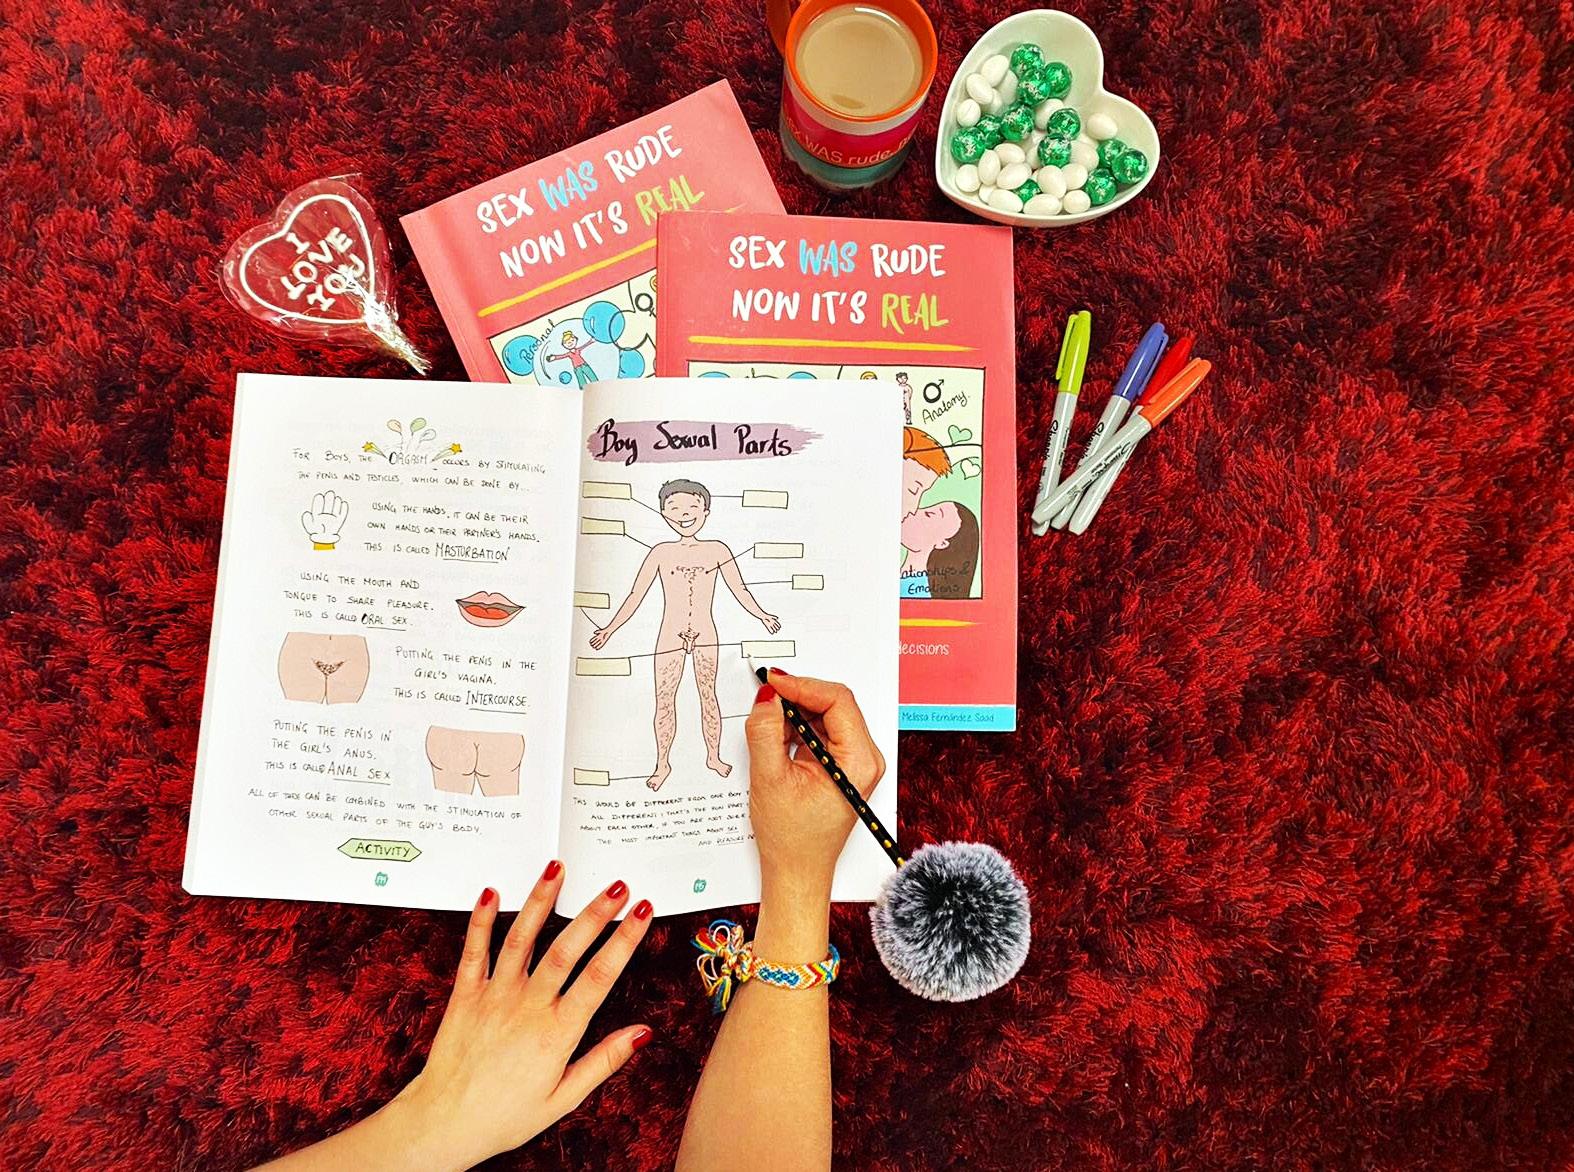 I
LOVE
YOU
SEX WAS RUDE
NOW IT'S REAL
Personal
WAS rude
SEX WAS RUDE
NOW IT'S REAL
Anatomy
Emotions
decisions
Melissa Fernández Saad
Sharpie
FOR BOYS, THE ORGASM OCCURS BY STIMULATING
THE PENIS AND TESTICLES, WHICH CAN BE DONE BY...
USING THE HANDS. IT CAN BE THEIR
OWN HANDS OR THEIR PARTNER'S HANDS.
THIS IS CALLED MASTURBATION
USING THE MOUTH AND
TONGUE TO SHARE PLEASURE.
THIS IS CALLED ORAL SEX.
PUTTING THE PENIS IN THE
GIRL'S VAGINA.
THIS IS CALLED INTERCOURSE.
PUTTING THE PENIS IN
THE GIRL'S ANUS.
THIS IS CALLED ANAL SEX
ALL OF THESE CAN BE COMBINED WITH THE STIMULATION OF
OTHER SEXUAL PARTS OF THE GUY'S BODY.
ACTIVITY
Boy Sexual Parts
THIS WOULD BE DIFFERENT FROM ONE BOY
ALL DIFFERENT! THAT'S THE FUN PART
ABOUT EACH OTHER. IF YOU ARE NOT SURE
THE MOST IMPORTANT THINGS ABOUT SEX
AND PLEASURE